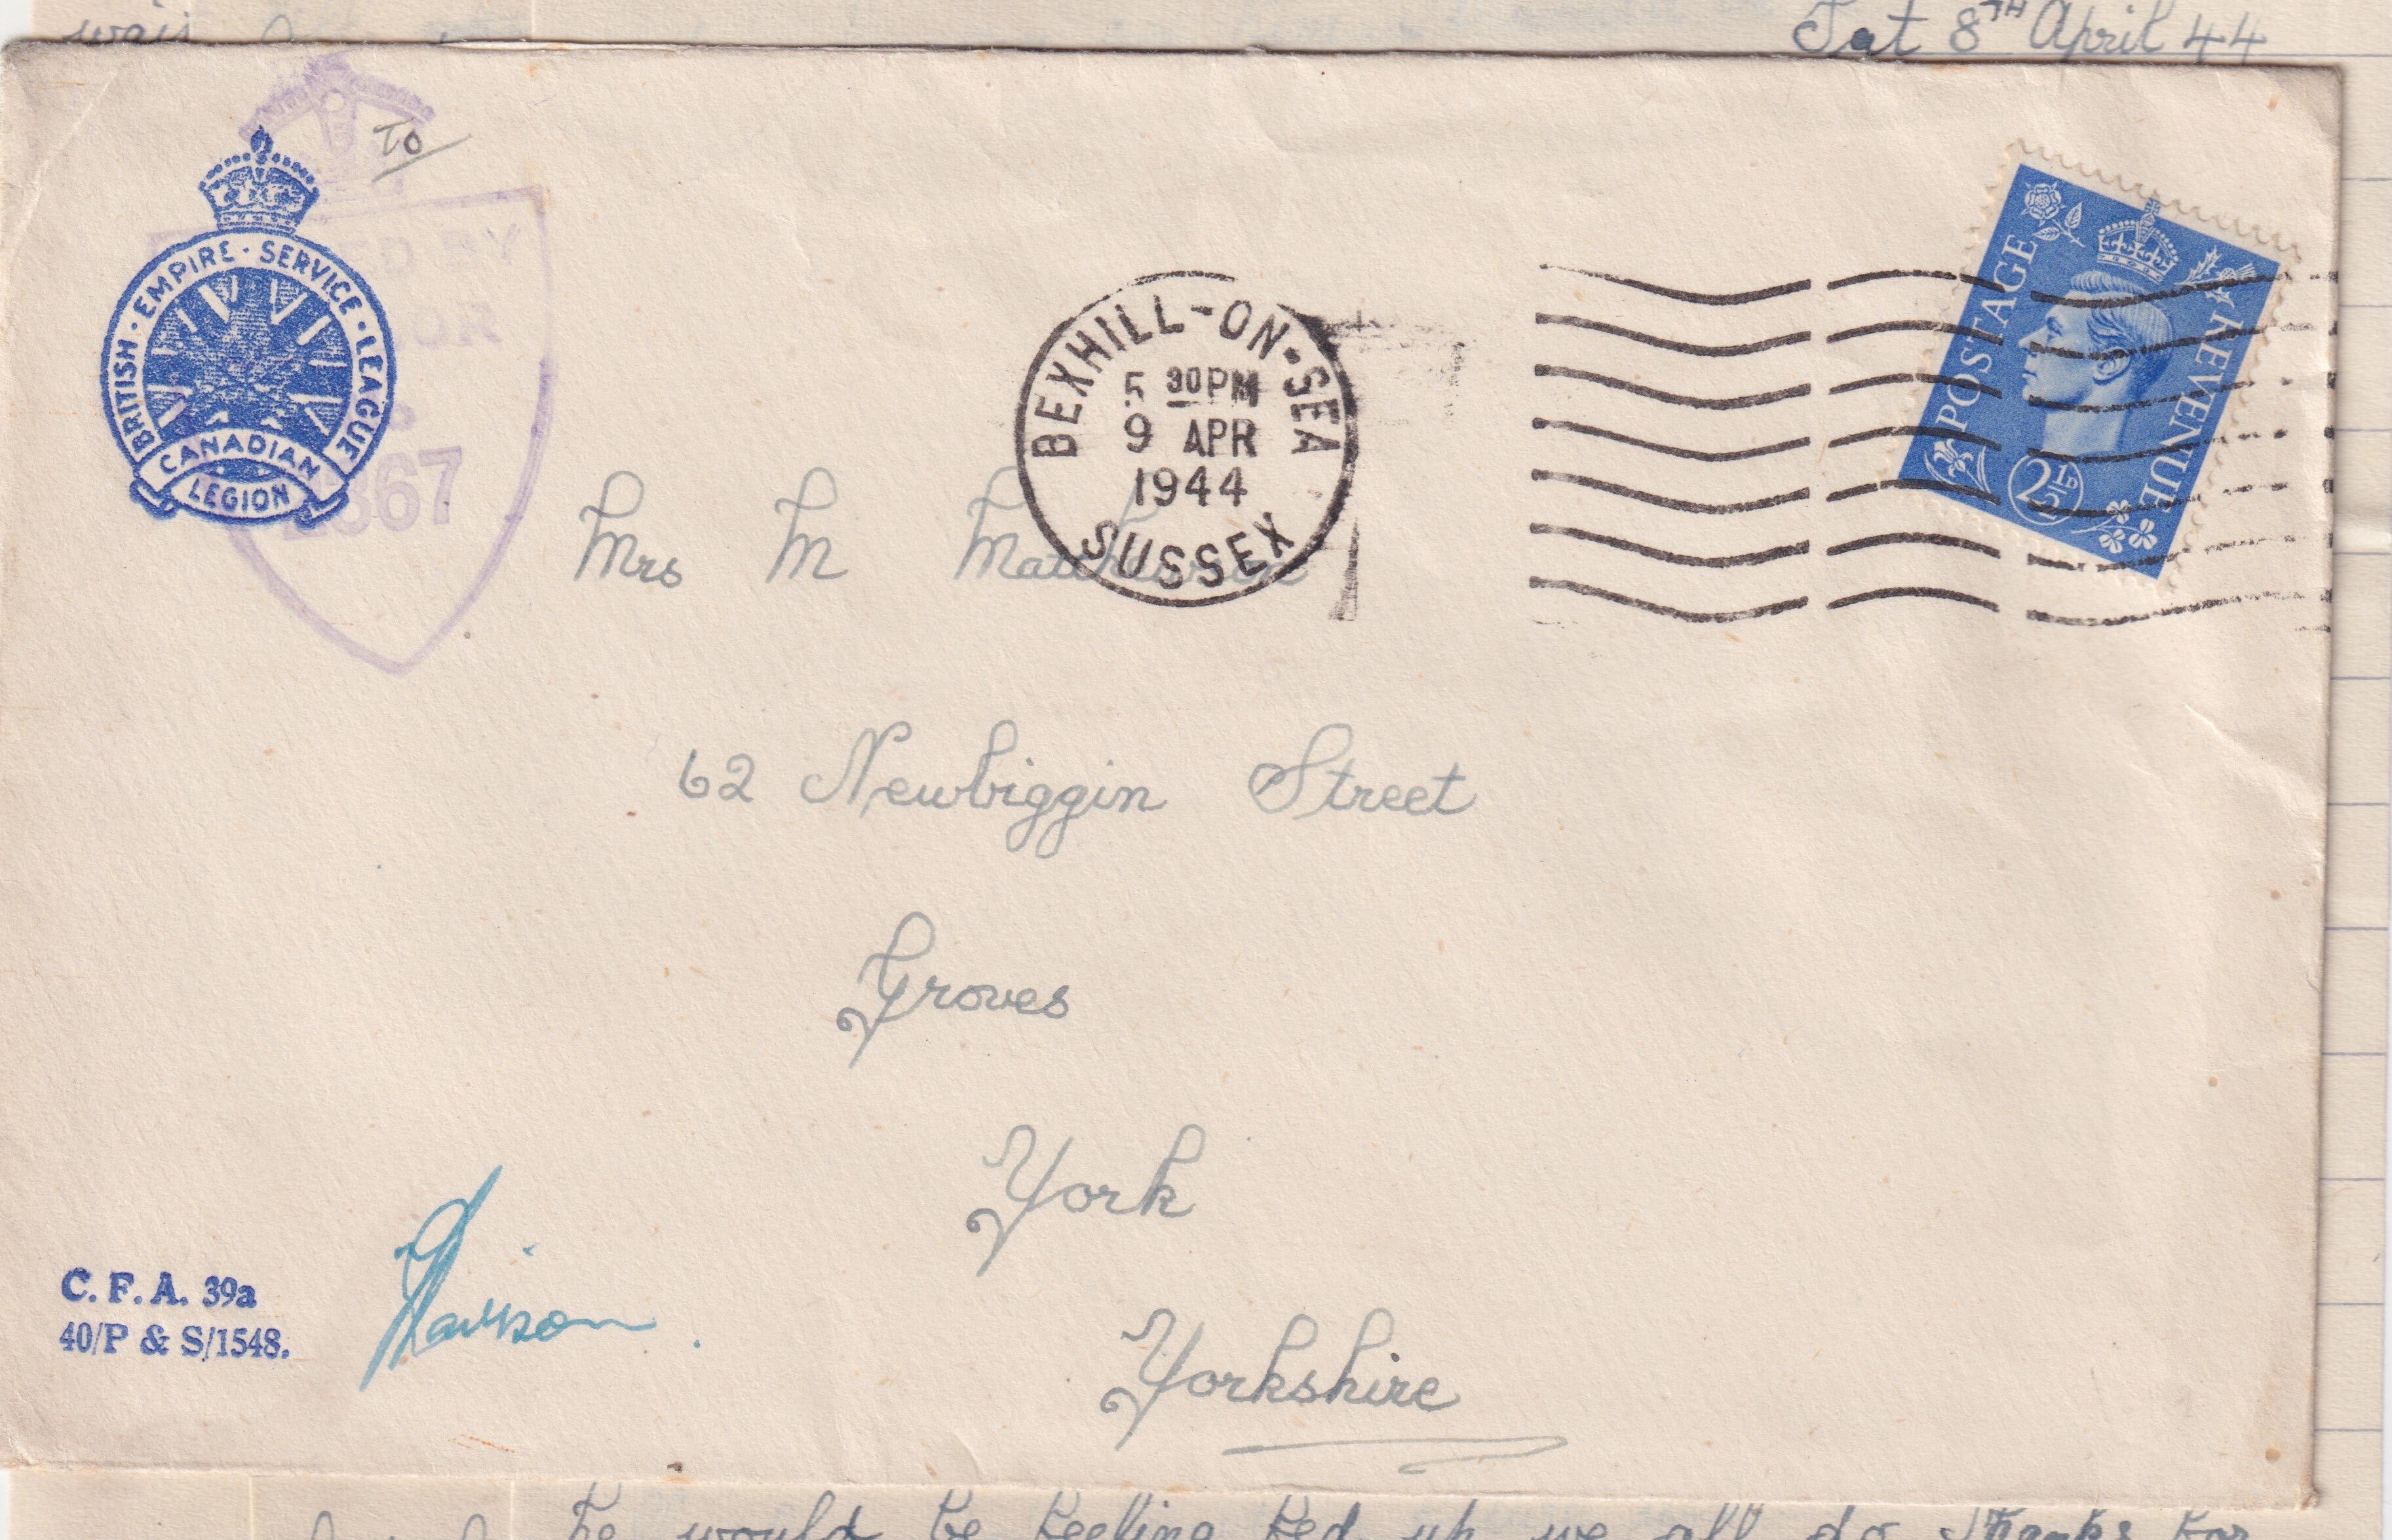 Sat 8TH April 44
TO
BRITISH · EMPIRE · SERVICE · LEAGUE
CANADIAN
LEGION
BEXHILL-ON-SEA
5 30PM
9 APR
1944
SUSSEX
POSTAGE
REVENUE
2½D
Mrs M
62 Newbiggin Street
Groves
York
Yorkshire
C. F. A. 39a
40/P & S/1548.
he would be feeling fed up we all do thanks for